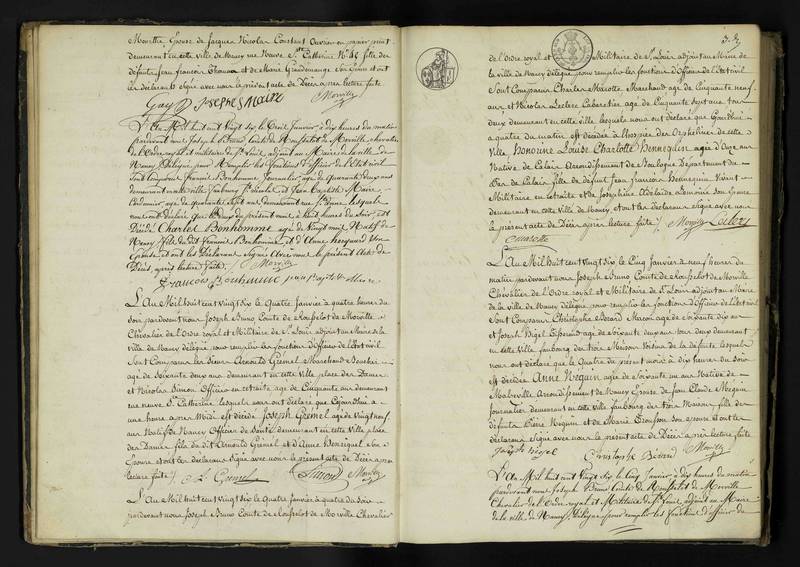 Meurthe, Epouse de Jacques Nicolas Constant Ouvrier en papier peint
demeurant en cette ville de Nancy rue Neuve Ste Catherine No 45 fille des
défunts Jean François et de Marie Grandemange son Epouse et ont
les déclarans signé avec nous le présent acte de Décès après lecture faite
Gay Joseph Maire Morville
L'An Mil huit cent Vingt six le Trois Janvier à dix heures du matin
pardevant nous Joseph Bruno Comte de Rouffelot de Morville, chevalier
de l'Ordre royal et militaire de St Louis, adjoint au Maire de la ville de
Nancy, délégué pour Remplir les fonctions d'officier de l'Etat civil
Sont Comparus François Bonhomme Journalier âgé de quarante deux ans
demeurant en cette ville faubourg St Nicolas et Jean Baptiste Maire
âgé de quarante sept ans demeurant rue lesquels
nous ont déclaré que le Deux du présent mois à huit heures du soir, est
Décédé Charles Bonhomme âgé de Vingt mois Natif de
Nancy fils de dit François Bonhomme et d'Anne son
Epouse et ont les Déclarans Signé avec nous le présent Acte de
Décès, après lecture faite. Morville
François Bonhomme jean baptiste Maire
L'An Mil huit cent Vingt six le Quatre Janvier à quatre heures du
soir pardevant nous Joseph Bruno Comte de Rouffelot de Morville
Chevalier de l'Ordre royal et Militaire de St Louis adjoint au Maire de la
ville de Nancy délégué pour remplir les fonctions d'Officier de l'Etat civil
Sont Comparus les sieurs Arnould Grémel Marchand Boucher
âgé de Soixante deux ans demeurant en cette ville place des Dames
et Nicolas Simon Officier en retraite âgé de Cinquante ans demeurant
rue neuve Ste Catherine lesquels nous ont déclaré que Cejourd'hui à
une heure après Midi est décédé Joseph Grémel âgé de Vingt neuf
ans Natif de Nancy Officier de Santé demeurant en cette ville place
des Dames fils du dit Arnould Grémel et d'Anne Henriquel son
Epouse et ont les déclarans signé avec nous le présent acte de Décès après
lecture faite. A. Gremel Simon Morville
L'An Mil huit cent Vingt six le Quatre Janvier à quatre heures du Soir
pardevant nous Joseph Bruno Comte de Rouffelot de Morville Chevalier
de l'Ordre royal et Militaire de St Louis adjoint au Maire de
la ville de Nancy délégué pour remplir les fonctions d'Officier de l'Etat civil
Sont Comparus Charles Marcotte Marchand âgé de Cinquante neuf
ans et Nicolas Leclere Cabaretier âgé de Cinquante sept ans tous
deux demeurant en cette ville lesquels nous ont déclaré que Cejourd'hui
à quatre du matin est décédée à l'hospice des Orphelines de cette
ville Honorine Louise Charlotte Hennequin âgée d'onze ans
Native de Calais Arrondissement de Boulogne Département du
Pas de Calais fille de défunt Jean François Hennequin Vivant
Militaire en retraite et de Joséphine Adélaïde Lemoine son Epouse
demeurant en cette Ville de Nancy, et ont les déclarans signé avec nous
le présent acte de Décès après lecture faite. Morville Leclerc
Marcotte
L'An Mil huit cent Vingt six le Cinq Janvier à neuf heures du
matin pardevant nous Joseph Bruno Comte de Rouffelot de Morville
Chevalier de l'Ordre royal et Militaire de St Louis adjoint au Maire
de la ville de Nancy délégué pour remplir les fonctions d'Officier de l'Etat civil
Sont Comparus Christophe Bérard Maçon âgé de Soixante dix ans
et Joseph Higel âgé de Soixante deux ans tous deux demeurant
en cette Ville faubourg des trois Maisons Voisins de la défunte lesquels
nous ont déclaré que le Quatre du présent mois à dix heures du soir
est décédée Anne Nequin âgée de Soixante un ans Native de
Malzéville Arrondissement de Nancy Epouse de Jean Claude Mézin
Journalier demeurant en cette Ville faubourg des trois Maisons fille des
défunts Pierre Nequin et de Marie son épouse et ont les
déclarans signé avec nous le présent acte de Décès après lecture faite
Joseph Higel Christophe Bérard Morville
L'An Mil huit cent Vingt six le Cinq Janvier à dix heures du matin
pardevant nous Joseph Bruno Comte de Rouffelot de Morville
Chevalier de l'Ordre royal et Militaire de St Louis, adjoint au Maire
de la ville de Nancy, délégué pour remplir les fonctions d'officier de